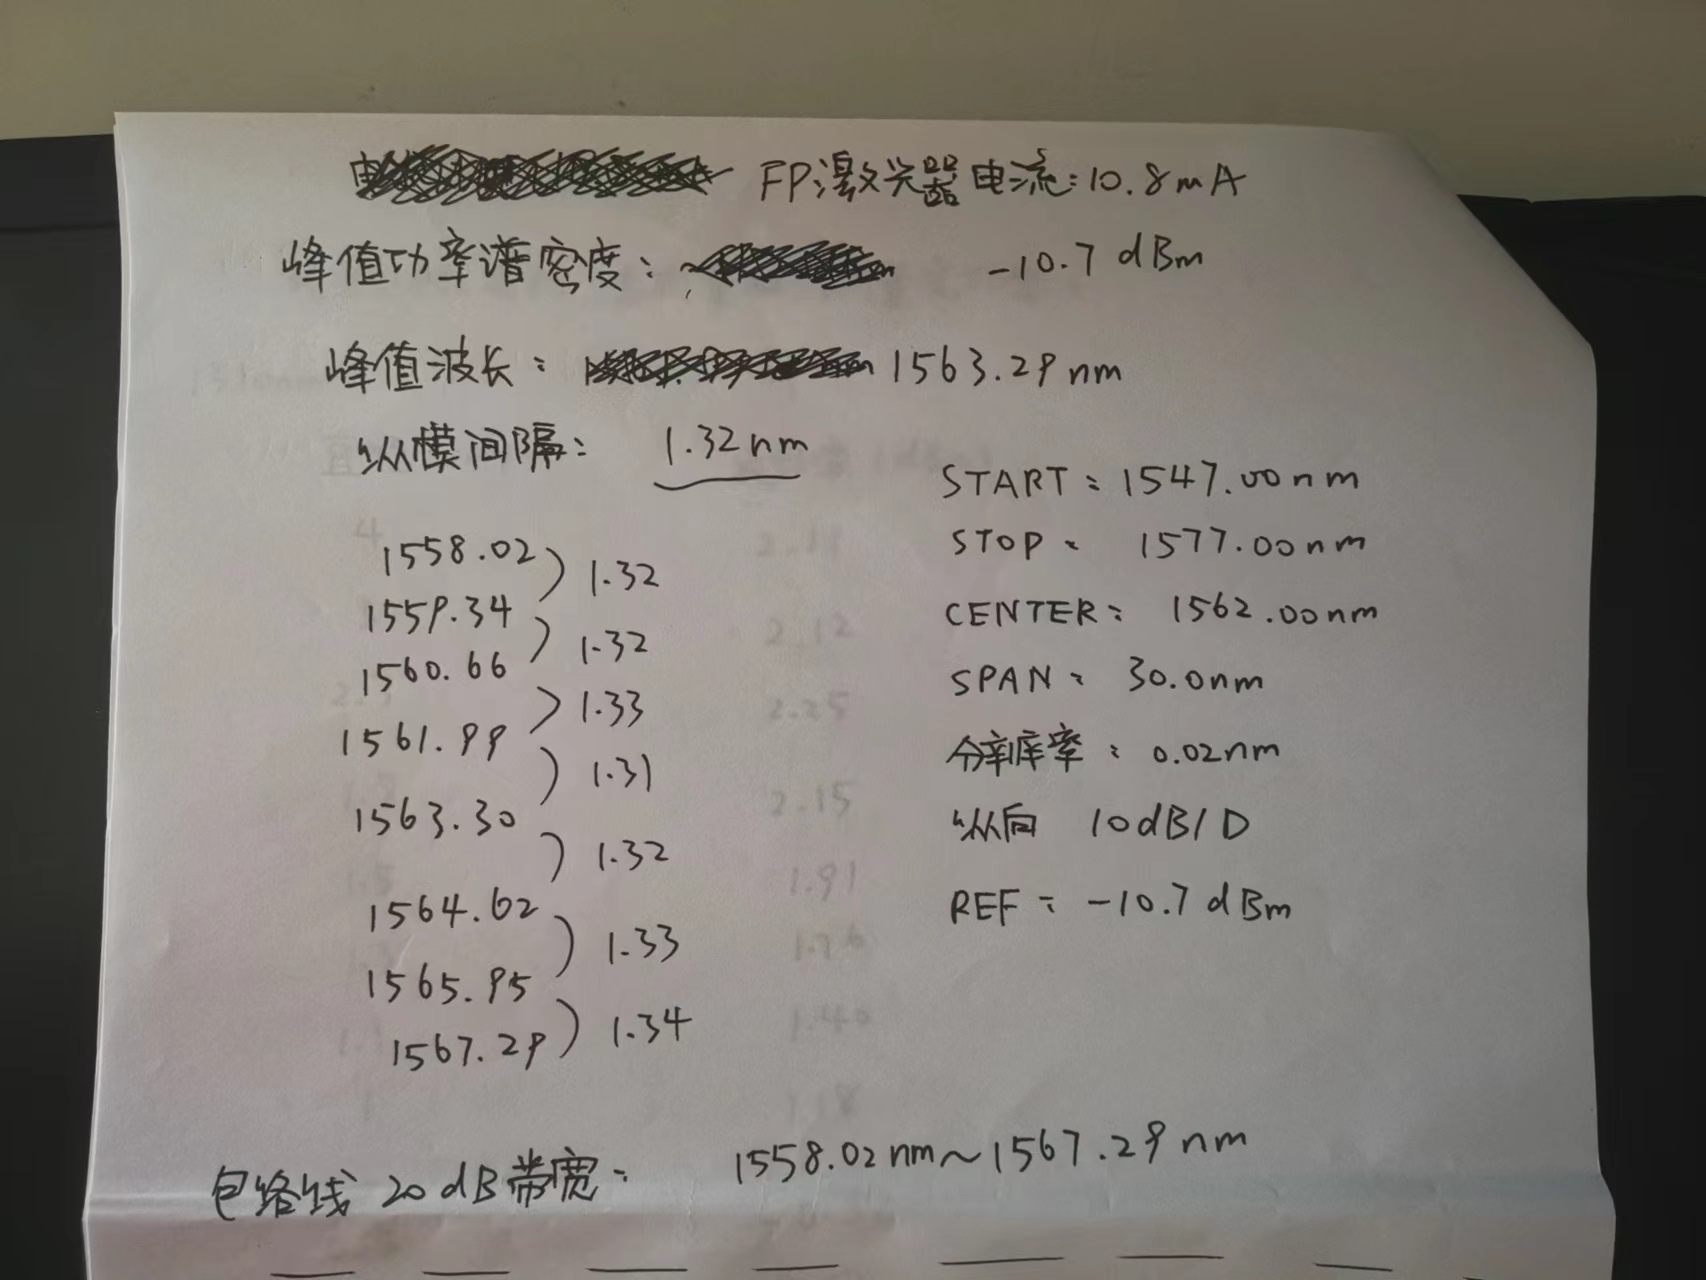 FP激光器电流:10.8mA
峰值功率谱密度: -10.7 dBm
峰值波长: 1563.29nm
纵模间隔: 1.32nm
1558.02
1.32
1559.34
1.32
1560.66
1.33
1561.99
1.31
1563.30
1.32
1564.62
1.33
1565.95
1.34
1567.29
START: 1547.00nm
STOP: 1577.00nm
CENTER: 1562.00nm
SPAN: 30.0nm
分辨率: 0.02nm
纵向 10dB/D
REF: -10.7dBm
包络线 20dB带宽: 1558.02nm~1567.29nm